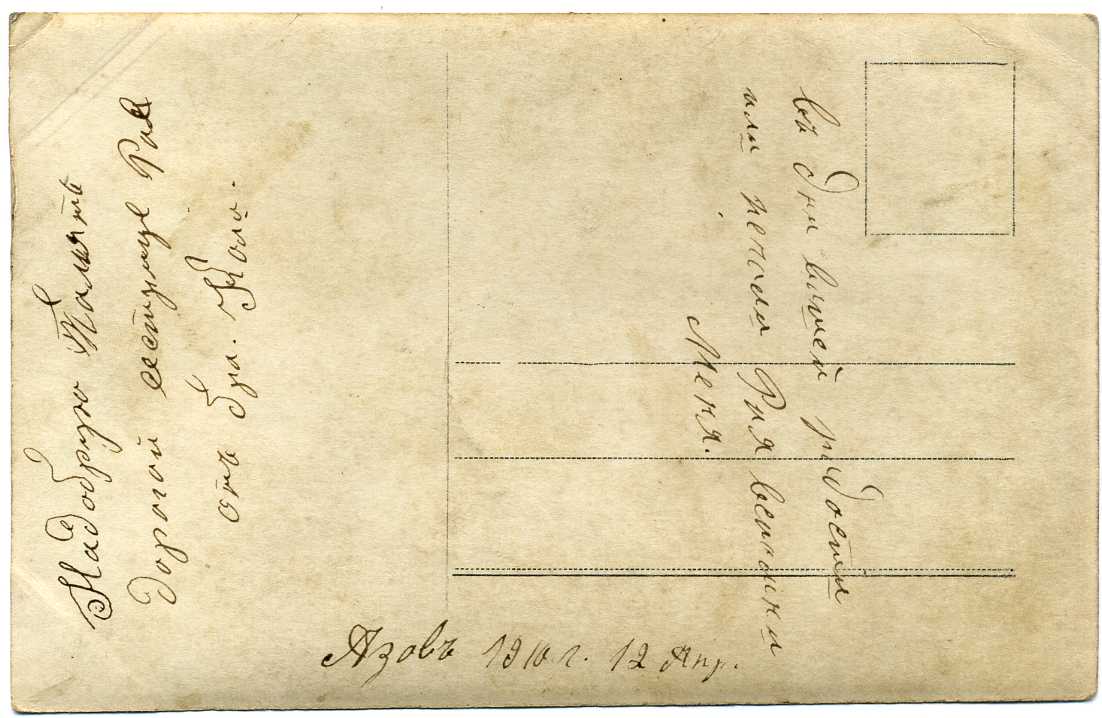 На добрую Память
дорогой сестрице Рае
отъ бра. Коли.
въ дни вашей радости
или печали Рая вспомни
Меня.
Азовъ 1910 г. 12 Апр.